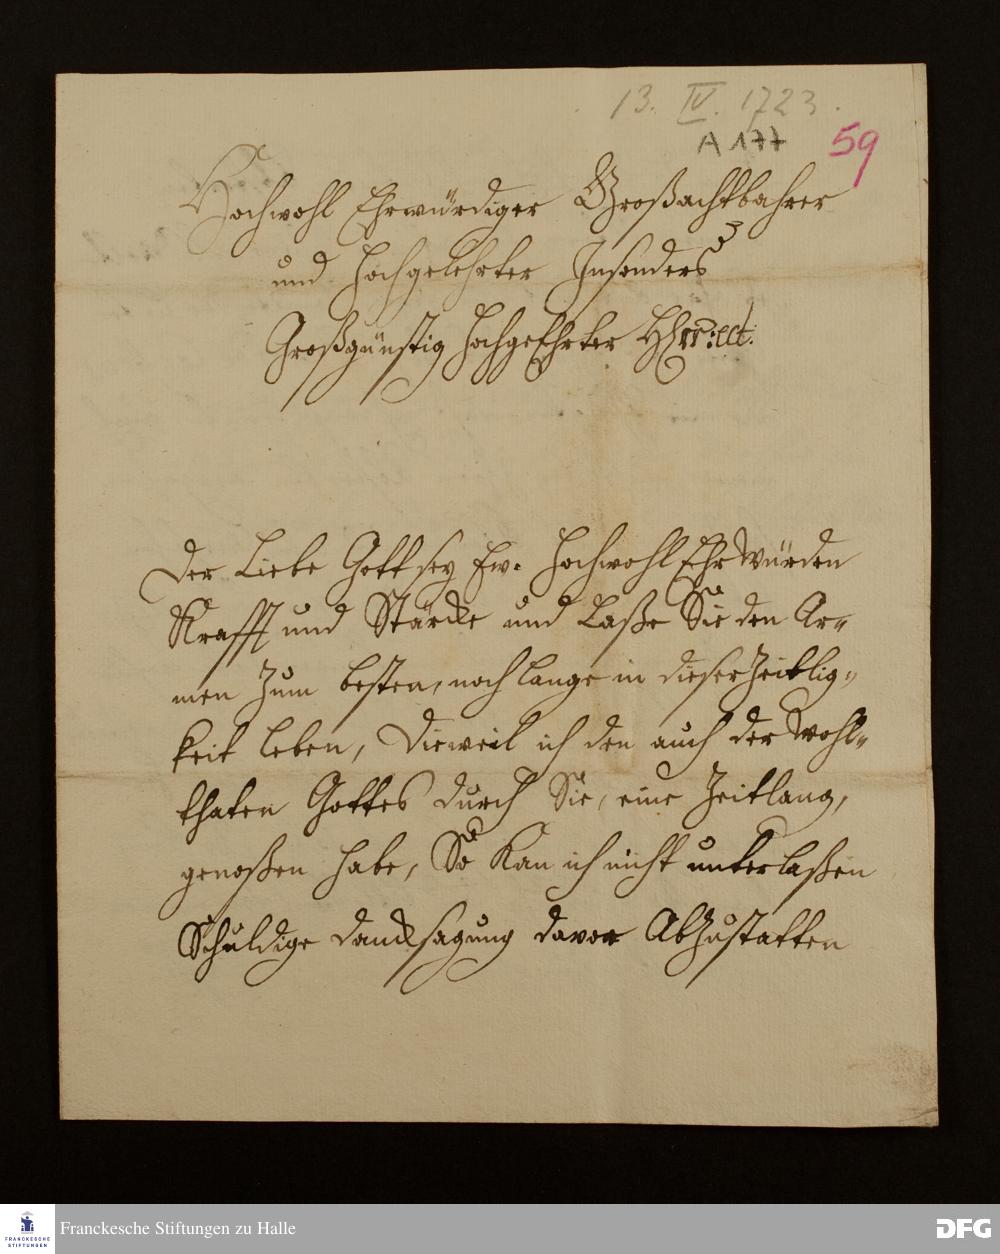 13. IV. 1723.
A 177
59
Hochwohl Ehrwürdiger Großachtbahrer
und Hochgelehrter Insonders
Großgünstig HochgeEhrter HErr: ect.
Der Liebe Gott sey Ew. HochwohlEhrWürden
Krafft und Stärcke und Laße Sie den Ar=
men Zum besten, noch lange in dieser Zeitlig=
keit leben, Dieweil ich den auch der Wohl=
thaten Gottes durch Sie, eine Zeitlang,
genoßen habe, So Kan ich nicht unterlaßen
Schuldige dancksagung davor AbZustatten
FRANCKESCHE STIFTUNGEN
Franckesche Stiftungen zu Halle
DFG